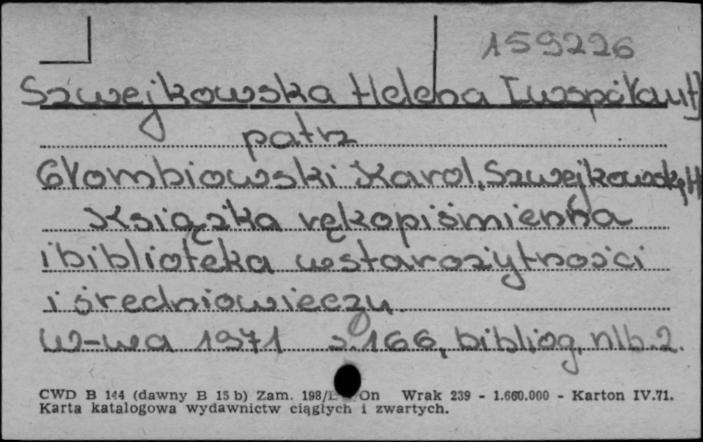 159226
Szwejkowska Helena [współaut]
patrz
Głombiowski Karol, Szwejkowska H
Książka rękopiśmienna
i biblioteka w starożytności
i średniowieczu
W-wa 1971 s. 166, bibliog. nlb. 2.
CWD B 144 (dawny B 15 b) Zam. 198/ On Wrak 239 - 1.660.000 - Karton IV.71.
Karta katalogowa wydawnictw ciągłych i zwartych.